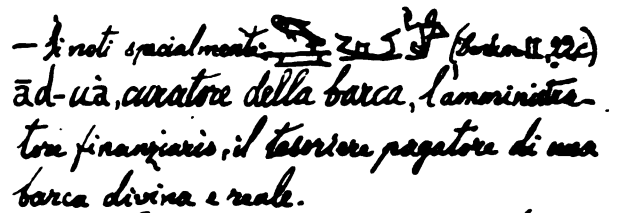 — Si noti specialmente: (Borchardt, 22c)
ād-uà, curatore della barca, l'amministra-
tore finanziario, il tesoriere pagatore di una
barca divina e reale.